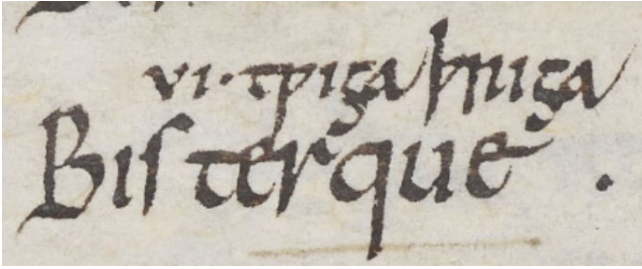 vi· tƿiga þriga
Bis terque .